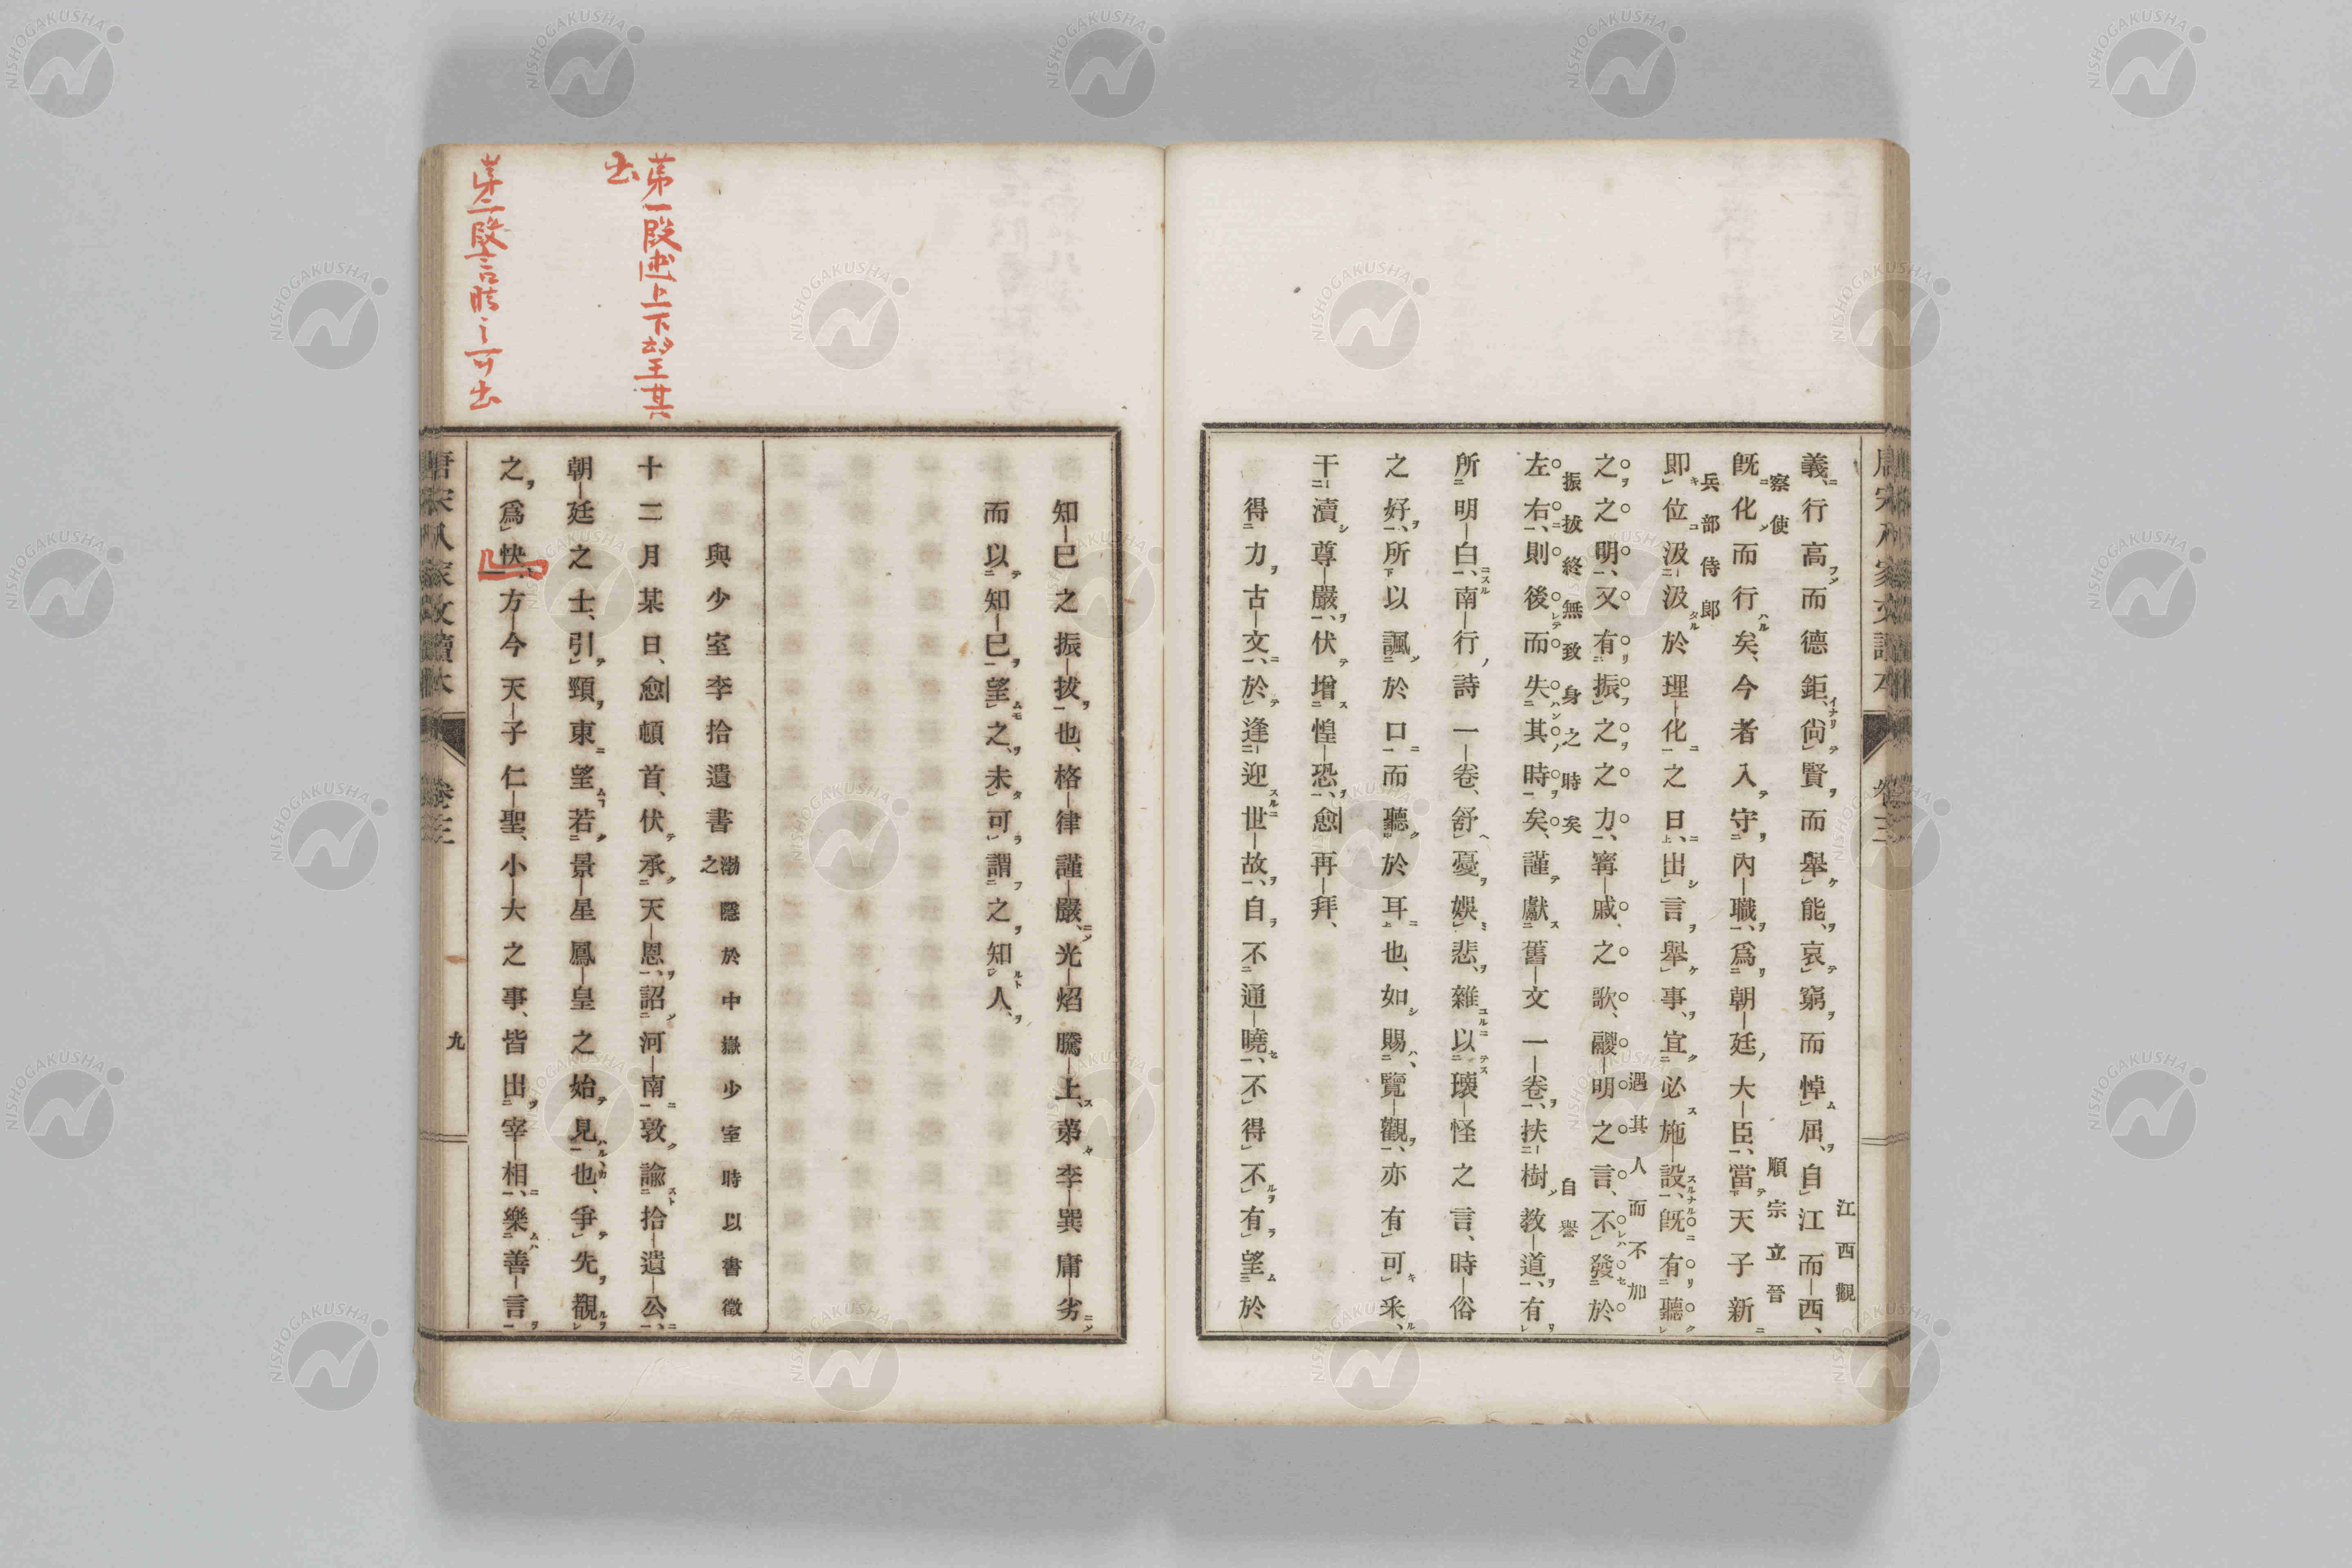 義、行高而德鉅、尙賢而舉能、哀窮而悼屈、自江而西、
江西觀
察使
既化而行矣、今者入守內職、爲朝廷大臣、當天子新
順宗立晉
兵部侍郎
卽位汲汲於理化之日、出言舉事、宜必施設、既有聽
之之明、又有振之之力、甯戚之歌、鬷明之言、不發於
遇其人而不加
振拔終無致身之時矣
左右、則後而失其時矣、謹獻舊文一卷、扶樹教道、有
自譽
所明白、南行詩一卷、舒憂娛悲、雜以瓌怪之言、時俗
之好、所以諷於口而聽於耳也、如賜覽觀、亦有可采、
干瀆尊嚴、伏增惶恐、愈再拜、
得力古文、於逢迎世故、自不通曉、不得不有望於
知己之振拔也、格律謹嚴、光焰騰上、第李巽庸劣
而以知己望之、未可謂之知人、
與少室李拾遺書
渤隱於中嶽少室時以書徵
之
第一段述上下望其
出
十二月某日、愈頓首、伏承天恩、詔河南敦諭拾遺公、
朝廷之士、引頸東望、若景星鳳皇之始見也、爭先觀
之爲快、方今天子仁聖、小大之事、皆出宰相、樂善言
第二段言時之可出
唐宋八家文讀本
卷三
九